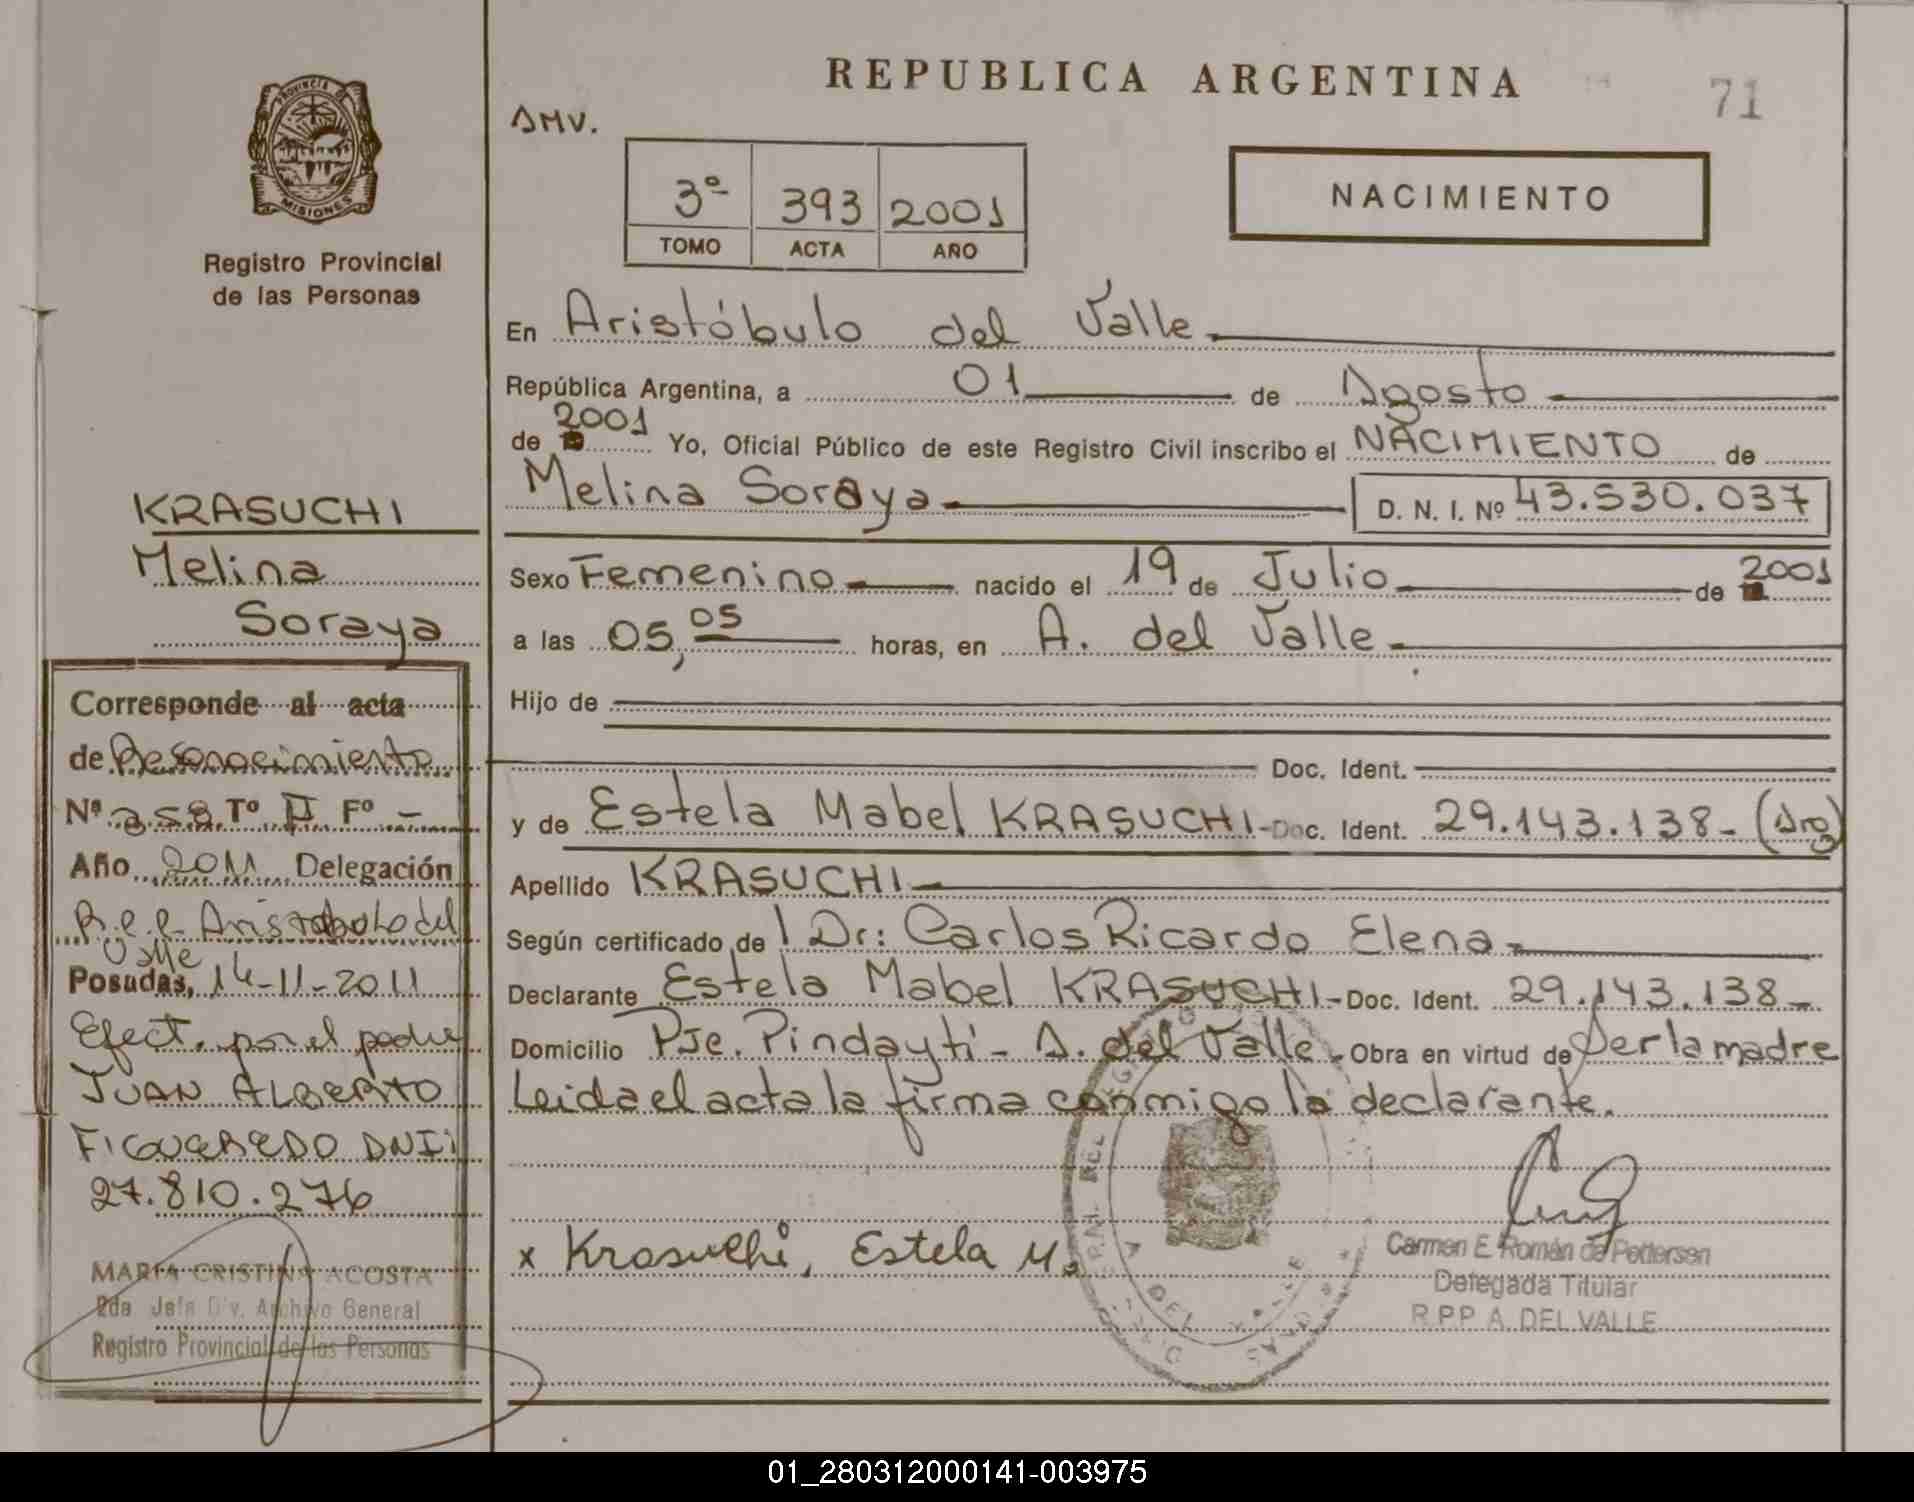 PROVINCIA DE
MISIONES
Registro Provincial
de las Personas
KRASUCHI
Melina
Soraya
Corresponde al acta
de Reconocimiento
Nº 258 Tº II Fº -
Año 2011 Delegación
R.P.P. Aristobulo del
Valle
Posadas, 14-11-2011
Efect. por el padre
JUAN ALBERTO
FIGUEREDO DNI:
27.810.276
MARIA CRISTINA ACOSTA
2da Jefa Div. Archivo General
Registro Provincial de las Personas
REPUBLICA ARGENTINA
71
AMV.
3º 393 2001
TOMO ACTA AÑO
NACIMIENTO
En Aristóbulo del Valle
República Argentina, a 01 de Agosto
de 2001 Yo, Oficial Público de este Registro Civil inscribo el NACIMIENTO de
Melina Soraya D. N. I. Nº 43.530.037
Sexo Femenino nacido el 19 de Julio de 2001
a las 05,05 horas, en A. del Valle
Hijo de
Doc. Ident.
y de Estela Mabel KRASUCHI - Doc. Ident. 29.143.138 - (Arg)
Apellido KRASUCHI
Según certificado de Dr: Carlos Ricardo Elena
Declarante Estela Mabel KRASUCHI - Doc. Ident. 29.143.138 -
Domicilio Pje. Pindayti - A. del Valle - Obra en virtud de ser la madre
Leida el acta la firma conmigo la declarante.
x Krasuchi, Estela M.
A DEL VALLE
Carmen E. Román de Pettersen
Delegada Titular
R.P.P A. DEL VALLE
01_280312000141-003975